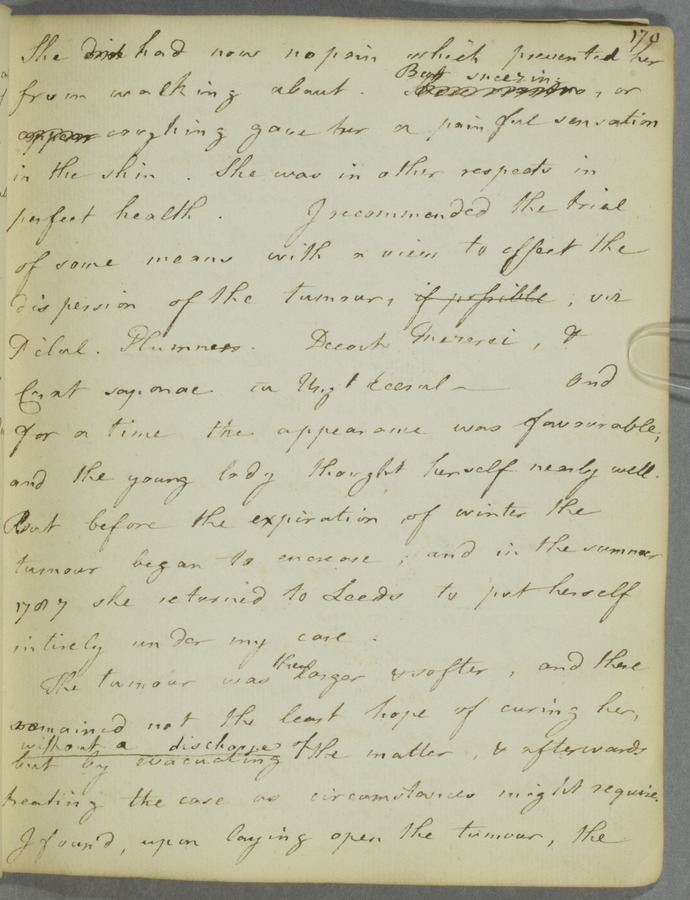 170
She had now no pain which prevented her
But sneezing
from walking about. , or
coughing gave her a painful sensation
in the skin. She was in other respects in
perfect health. I recommended the trial
of some means with a view to effect the
dispersion of the tumour, if possible; viz
Pilul. Plummer. Decoct Mezerei, &
Cerat saponac And
for a time the appearance was favourable,
and the young lady thought herself nearly well.
But before the expiration of winter the
tumour began to encrease; and in the summer
1787 she returned to Leeds to put herself
intirely under my care.
then
The tumour was larger & softer, and there
remained not the least hope of curing her,
without a discharge of
but by evacuating the matter, & afterwards
treating the case as circumstances might require.
I found, upon laying open the tumour, the